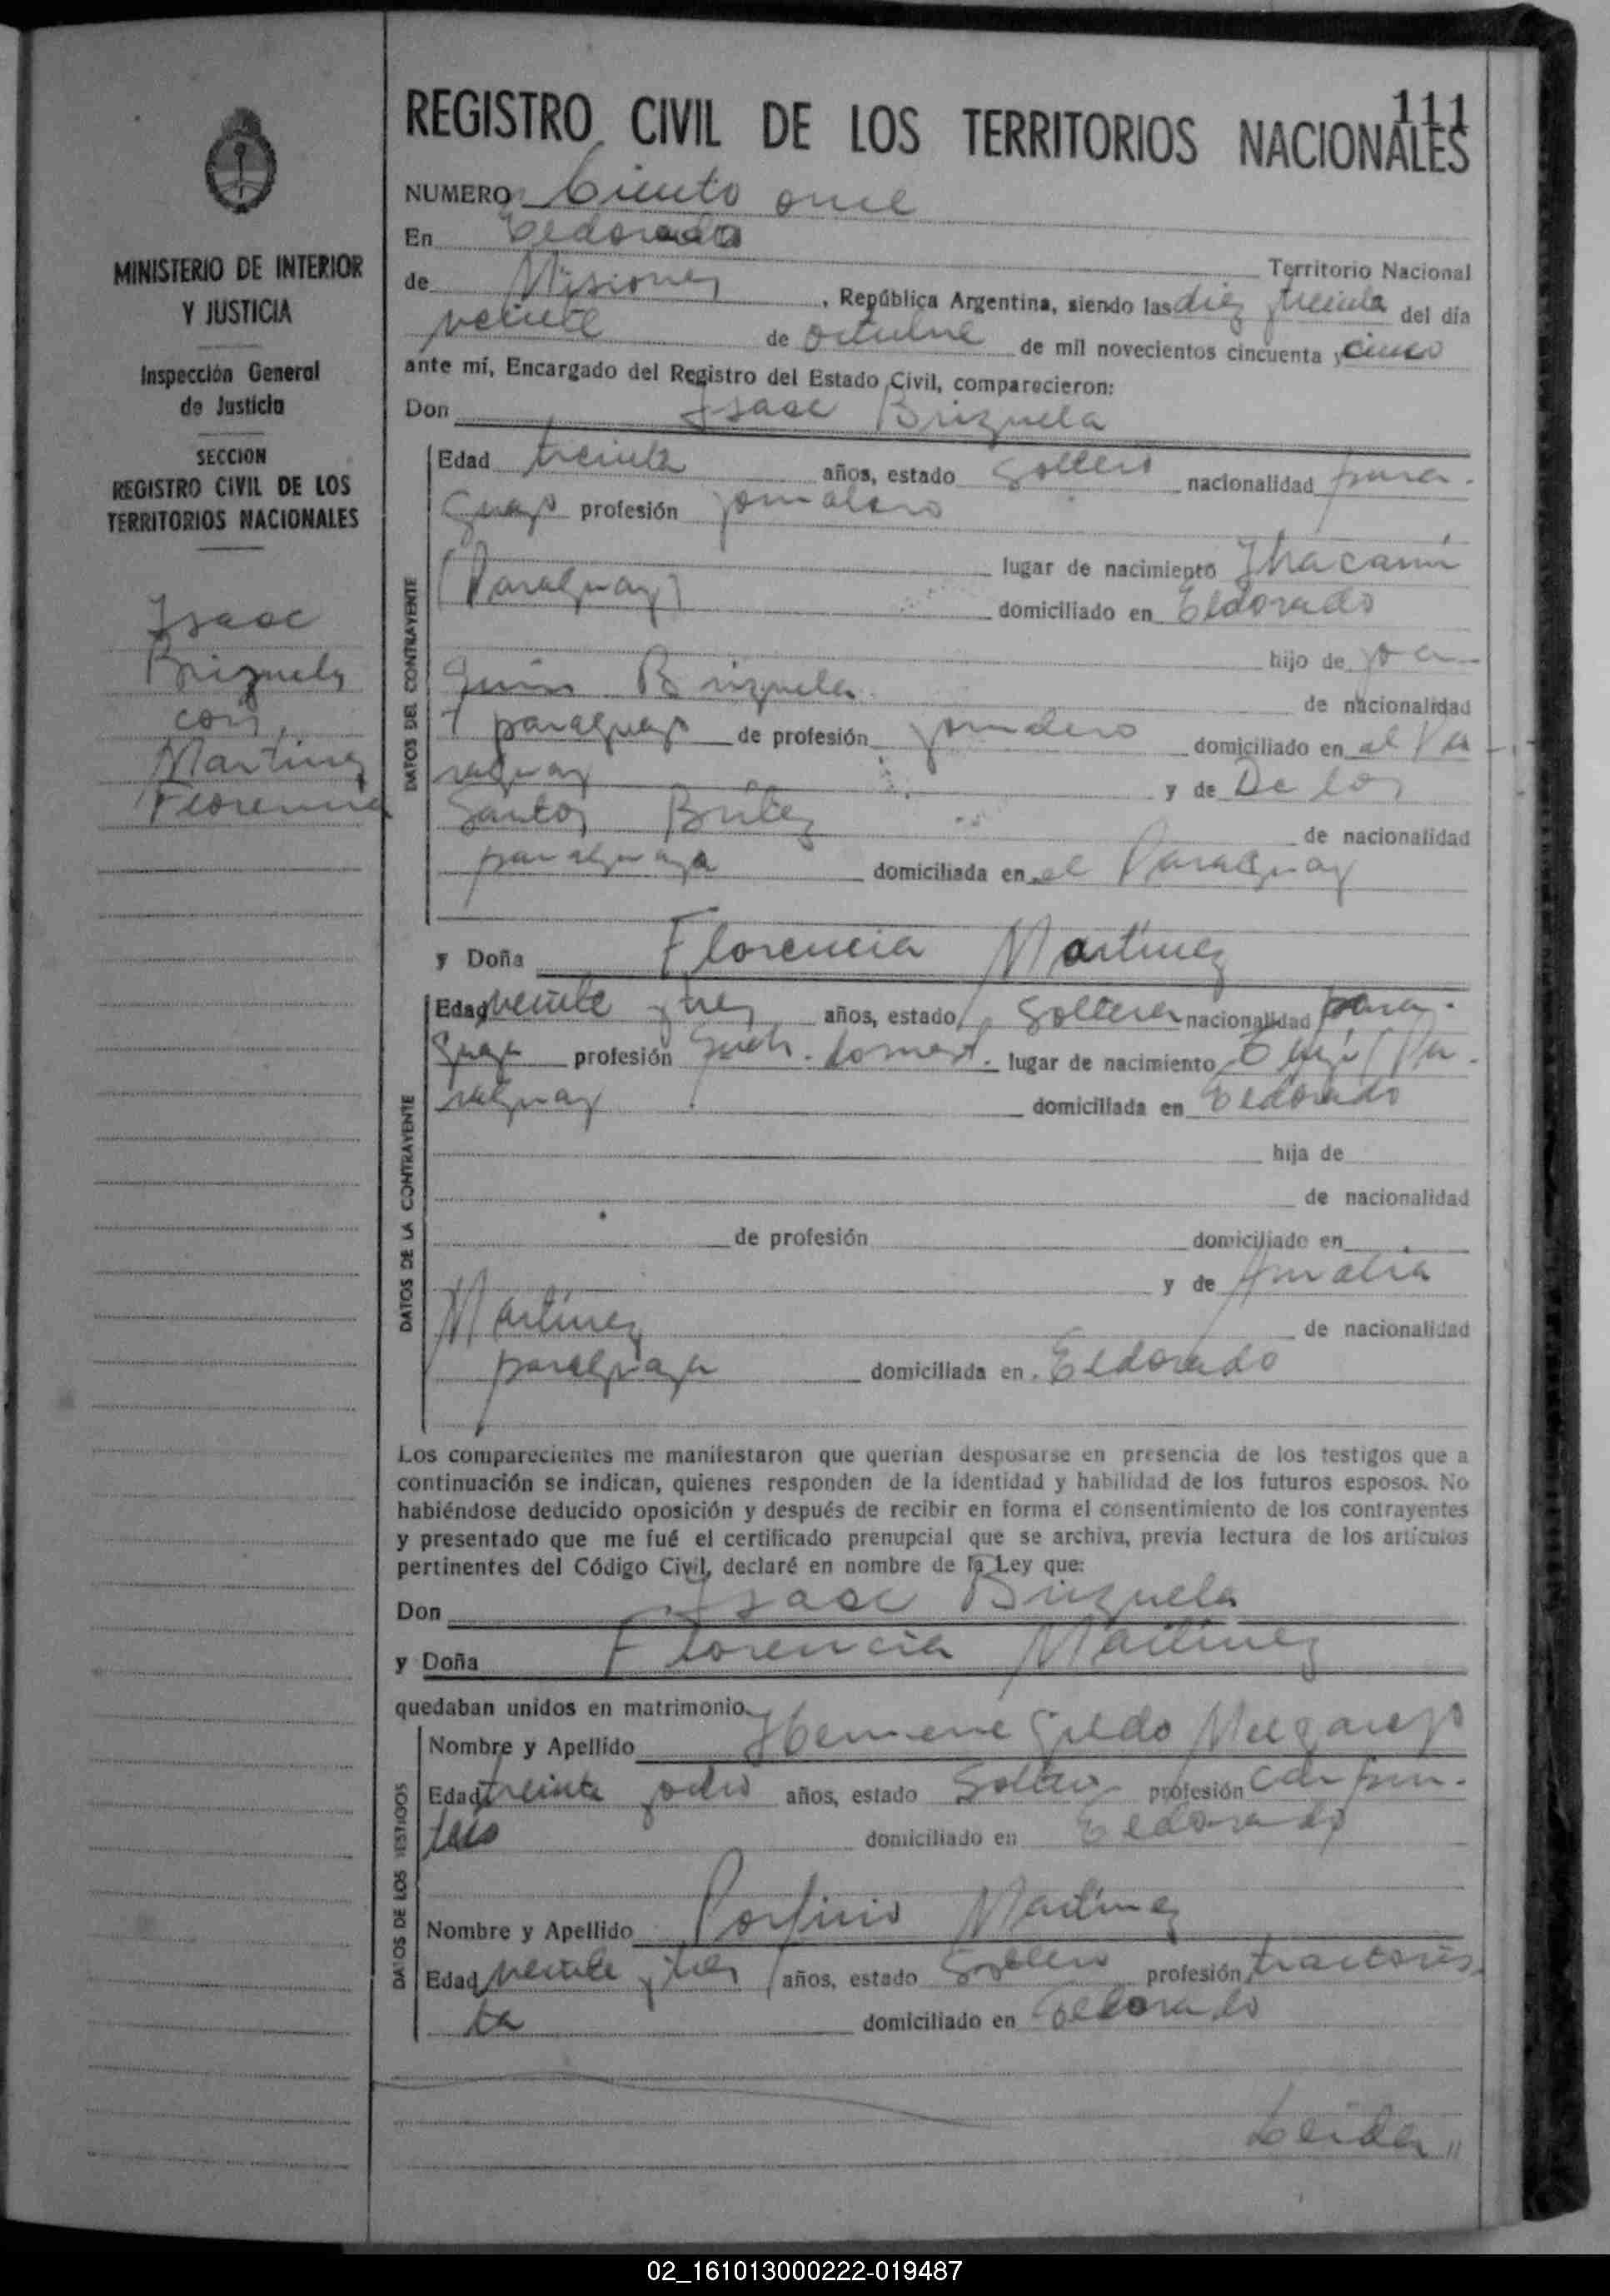 MINISTERIO DE INTERIOR
Y JUSTICIA
Inspección General
de Justicia
SECCION
REGISTRO CIVIL DE LOS
TERRITORIOS NACIONALES
Isaac
Brizuela
con
Martinez
Florencia
111
REGISTRO CIVIL DE LOS TERRITORIOS NACIONALES
NUMERO Ciento once
En Eldorado
Territorio Nacional
de Misiones, República Argentina, siendo las diez treinta del día
veinte de octubre de mil novecientos cincuenta y cinco
ante mí, Encargado del Registro del Estado Civil, comparecieron:
Don Isaac Brizuela
DATOS DEL CONTRAYENTE
Edad treinta años, estado soltero nacionalidad para-
guayo profesión jornalero
lugar de nacimiento Yhacanii
(Paraguay) domiciliado en Eldorado
hijo de Joa-
quin Brizuela de nacionalidad
paraguayo de profesión jornalero domiciliado en el Pa-
raguay y de De los
Santos Britez de nacionalidad
paraguaya domiciliada en el Paraguay
y Doña Florencia Martínez
DATOS DE LA CONTRAYENTE
Edad veinte y tres años, estado soltera nacionalidad para-
guaya profesión domest. lugar de nacimiento (Pa-
raguay domiciliada en Eldorado
hija de
de nacionalidad
de profesión domiciliado en
y de Amalia
Martínez de nacionalidad
paraguaya domiciliada en Eldorado
Los comparecientes me manifestaron que querían desposarse en presencia de los testigos que a
continuación se indican, quienes responden de la identidad y habilidad de los futuros esposos. No
habiéndose deducido oposición y después de recibir en forma el consentimiento de los contrayentes
y presentado que me fué el certificado prenupcial que se archiva, previa lectura de los artículos
pertinentes del Código Civil, declaré en nombre de la Ley que:
Don Isaac Brizuela
y Doña Florencia Martínez
quedaban unidos en matrimonio.
DATOS DE LOS TESTIGOS
Nombre y Apellido Hermenegildo Melgarejo
Edad treinta y ocho años, estado Soltero profesión carpin-
tero domiciliado en Eldorado
Nombre y Apellido Porfirio Martínez
Edad veinte y tres años, estado Soltero profesión tractoris-
ta domiciliado en Eldorado
Leida //
02_161013000222-019487